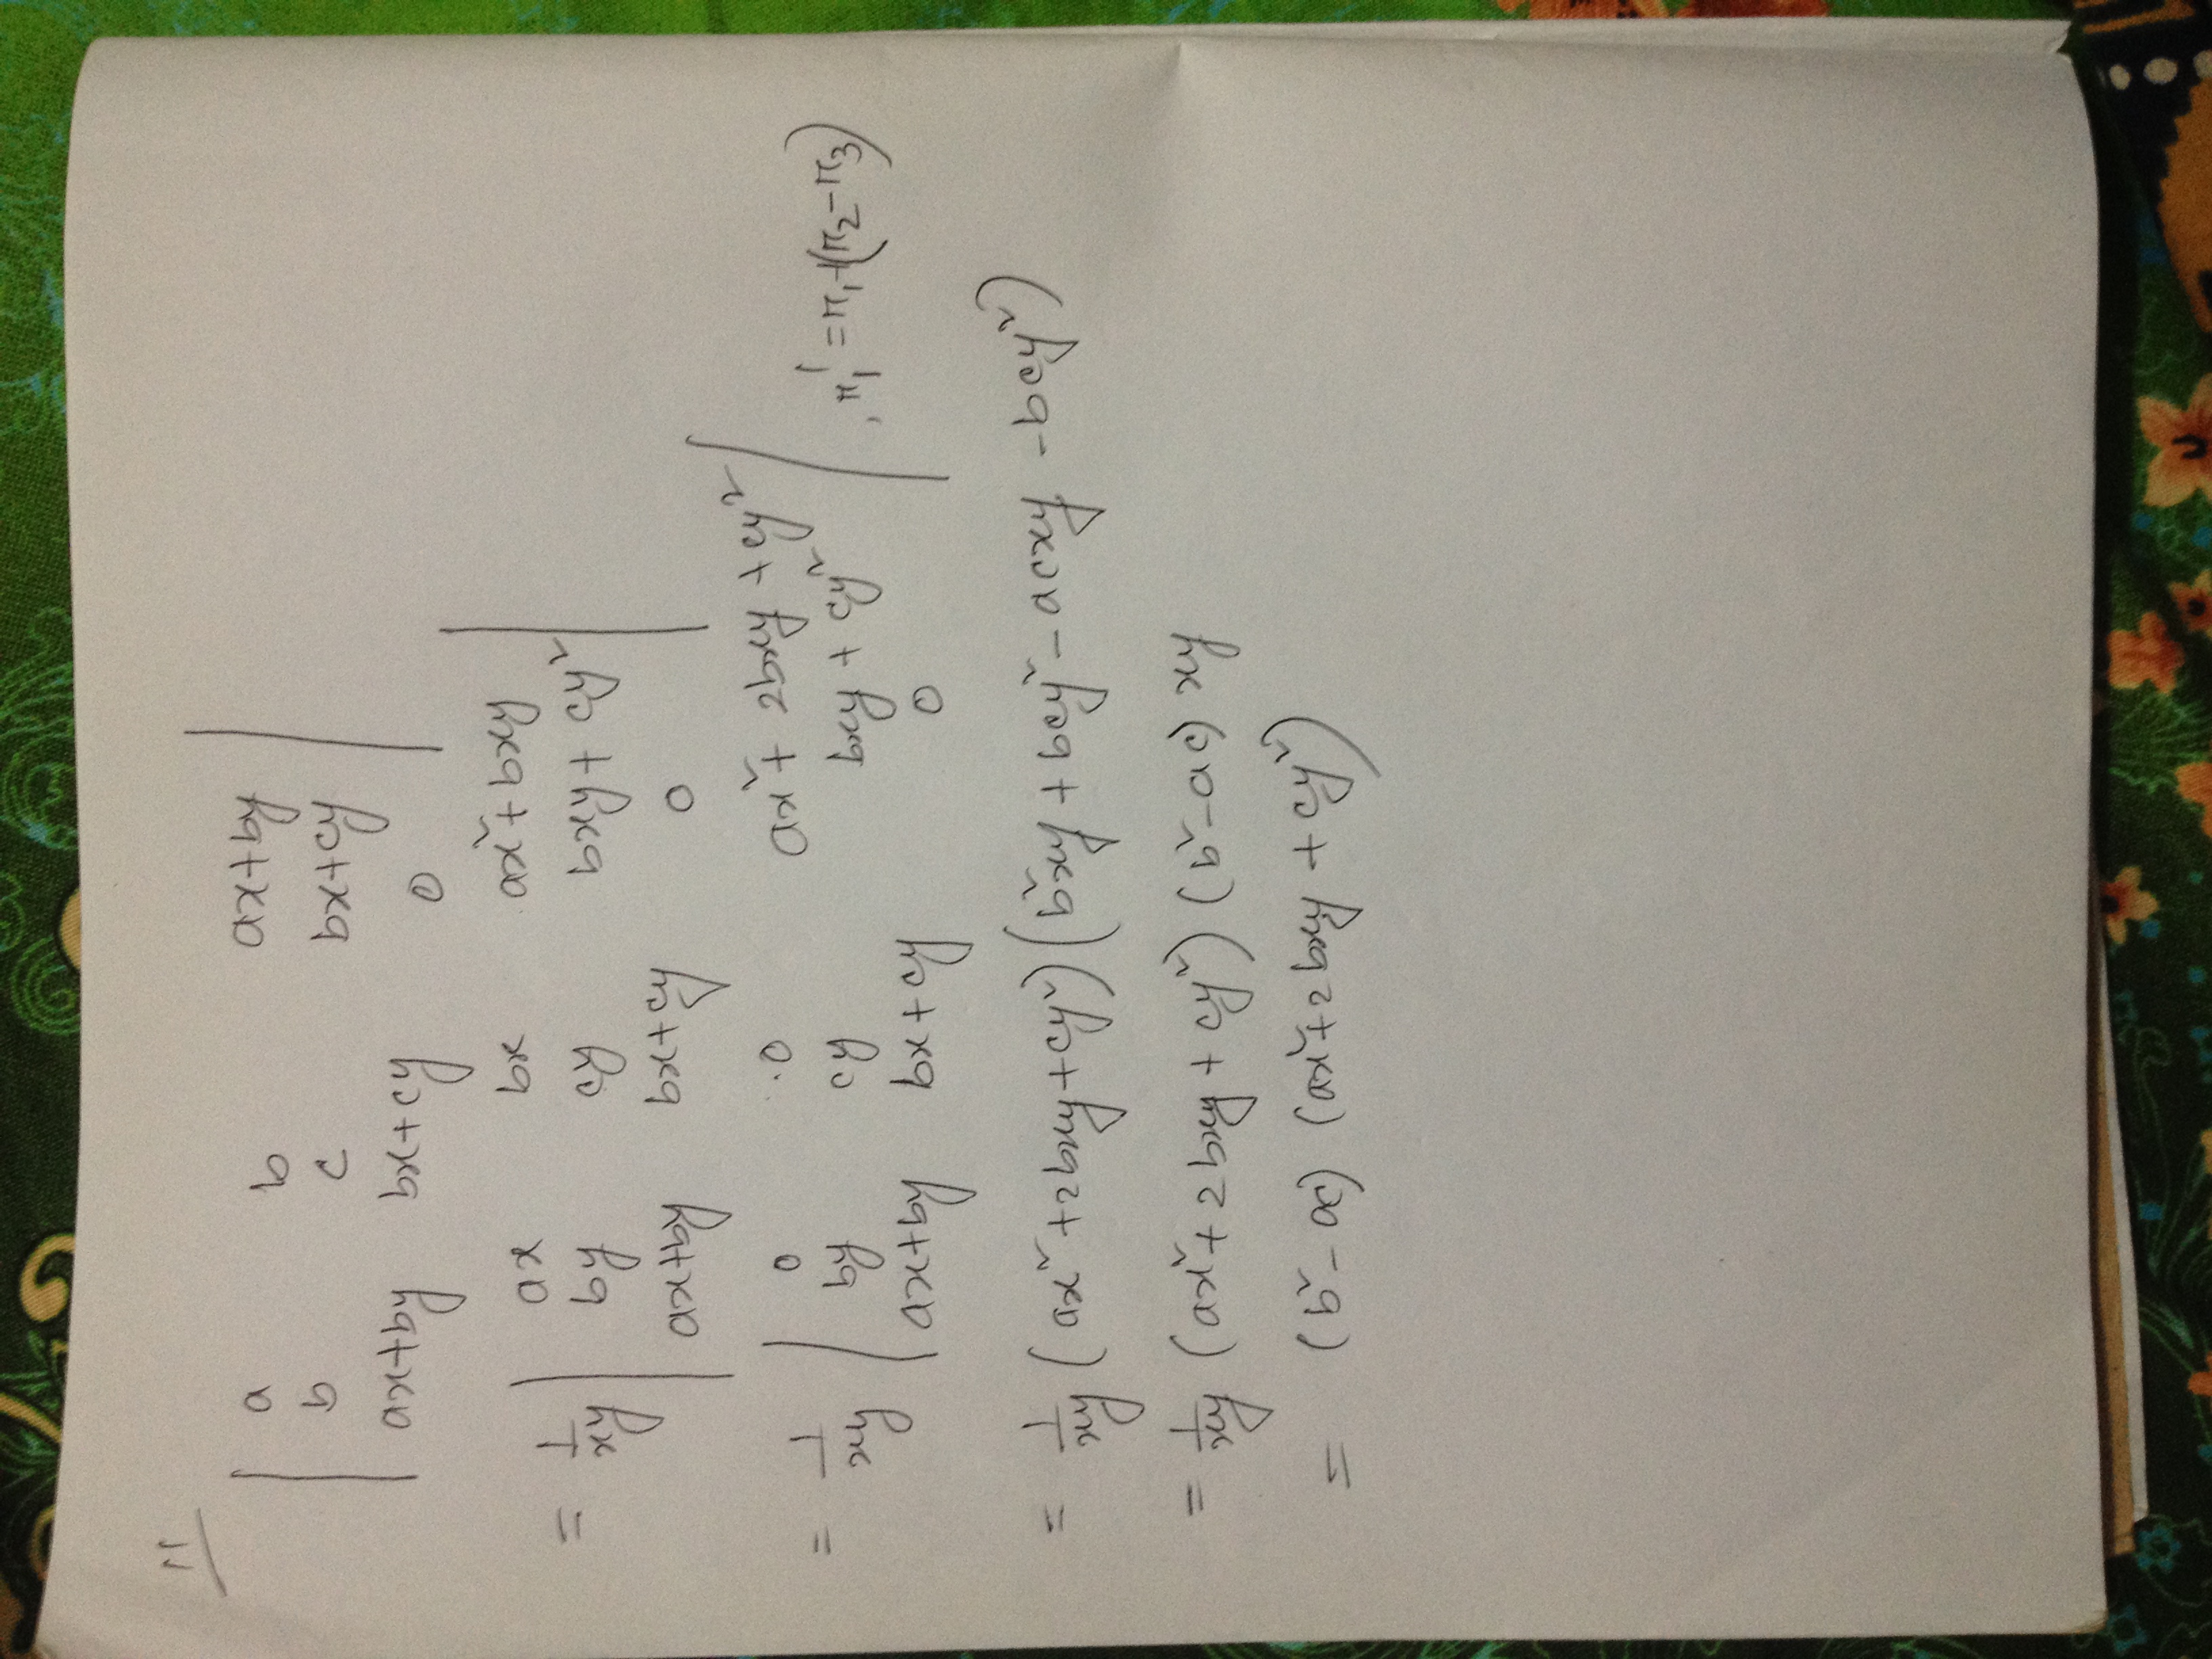 11
| a b ax+by |
| b c bx+cy |
| ax+by bx+cy 0 |
= 1/xy | ax bx ax²+bxy |
| by cy bxy+cy² |
| ax+by bx+cy 0 |
= 1/xy | 0 0 ax²+2bxy+cy² |
| by cy bxy+cy² | , r₁' = r₁+(r₂-r₃)
| ax+by bx+cy 0 |
= 1/xy (ax²+2bxy+cy²)(b²xy+bcy²-acxy-bcy²)
= 1/xy (ax²+2bxy+cy²)(b²-ac)xy
= (b²-ac)(ax²+2bxy+cy²)